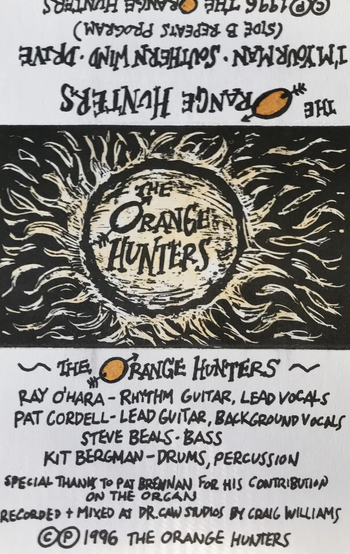 THE ORANGE HUNTERS
I'M YOUR MAN · SOUTHERN WIND · DRIVE
(SIDE B REPEATS PROGRAM)
©℗1996 THE ORANGE HUNTERS
THE
ORANGE
HUNTERS
~ THE ORANGE HUNTERS ~
RAY O'HARA - RHYTHM GUITAR, LEAD VOCALS
PAT CORDELL - LEAD GUITAR, BACKGROUND VOCALS
STEVE BEALS - BASS
KIT BERGMAN - DRUMS, PERCUSSION
SPECIAL THANKS TO PAT BRENNAN FOR HIS CONTRIBUTION
ON THE ORGAN
RECORDED + MIXED AT DR. CAW STUDIOS BY CRAIG WILLIAMS
©℗ 1996 THE ORANGE HUNTERS